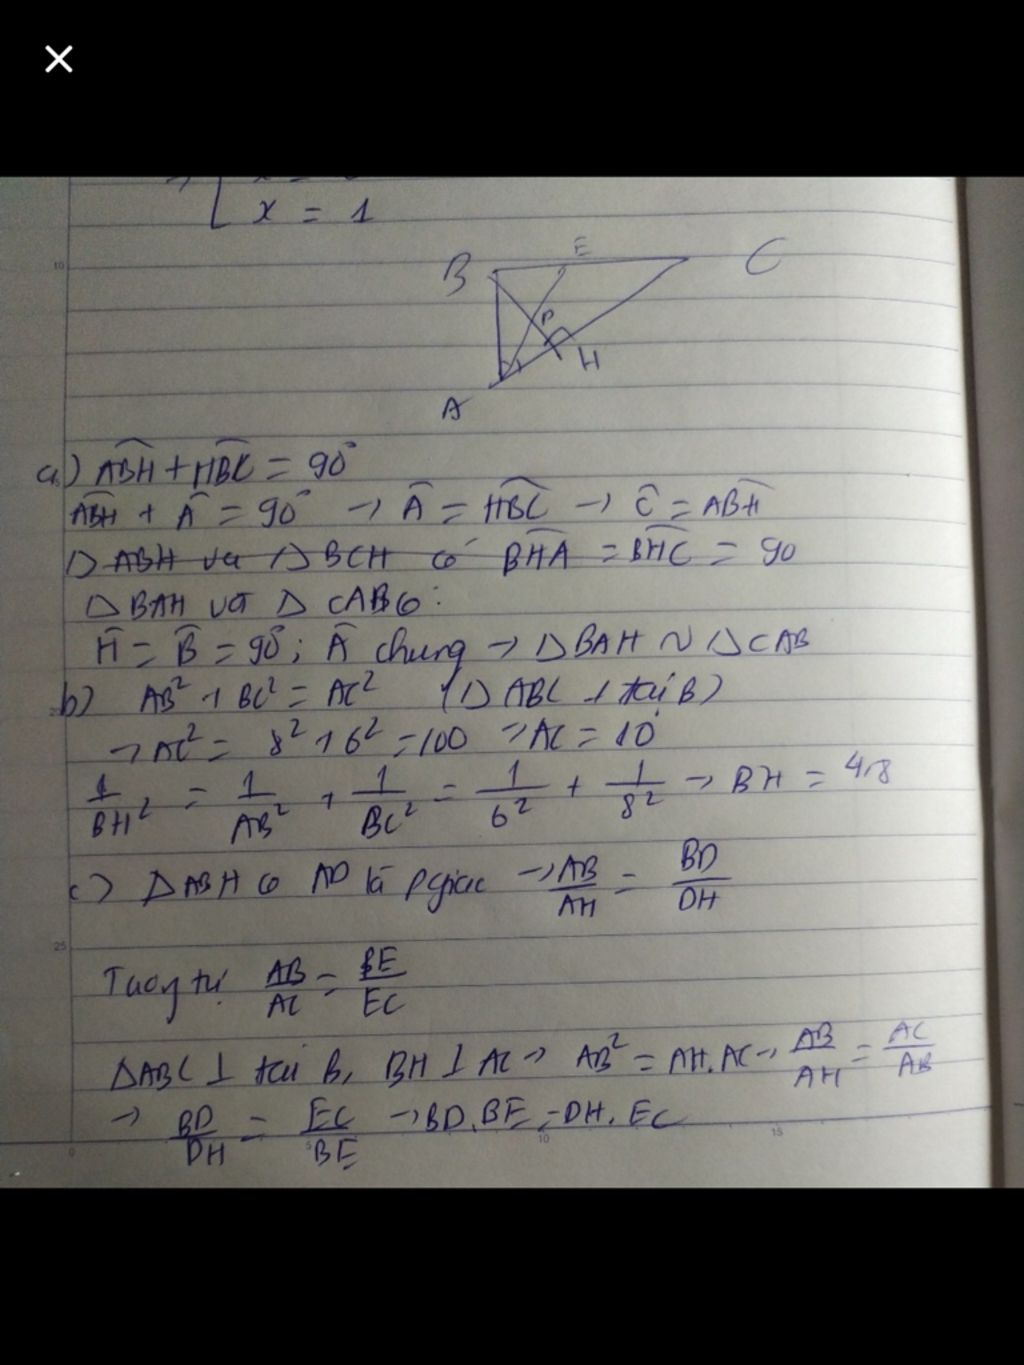 x = 1
B E C
D
H
A
a) ABH + HBC = 90°
ABH + Â = 90° → Â = HBC → Ĉ = ABH
Δ ABH và Δ BCH có BHA = BHC = 90
Δ BAH và Δ CAB có:
Ĥ = B̂ = 90°; Â chung → Δ BAH ~ Δ CAB
b) AB² + BC² = AC² (Δ ABC ⊥ tại B)
→ AC² = 8² + 6² = 100 → AC = 10
1/BH² = 1/AB² + 1/BC² = 1/6² + 1/8² → BH = 4,8
c) Δ ABH có AD là pgiác → AB/AH = BD/DH
Tương tự AB/AC = BE/EC
ΔABC ⊥ tại B, BH ⊥ AC → AB² = AH.AC → AB/AH = AC/AB
→ BD/DH = EC/BE → BD.BE = DH.EC